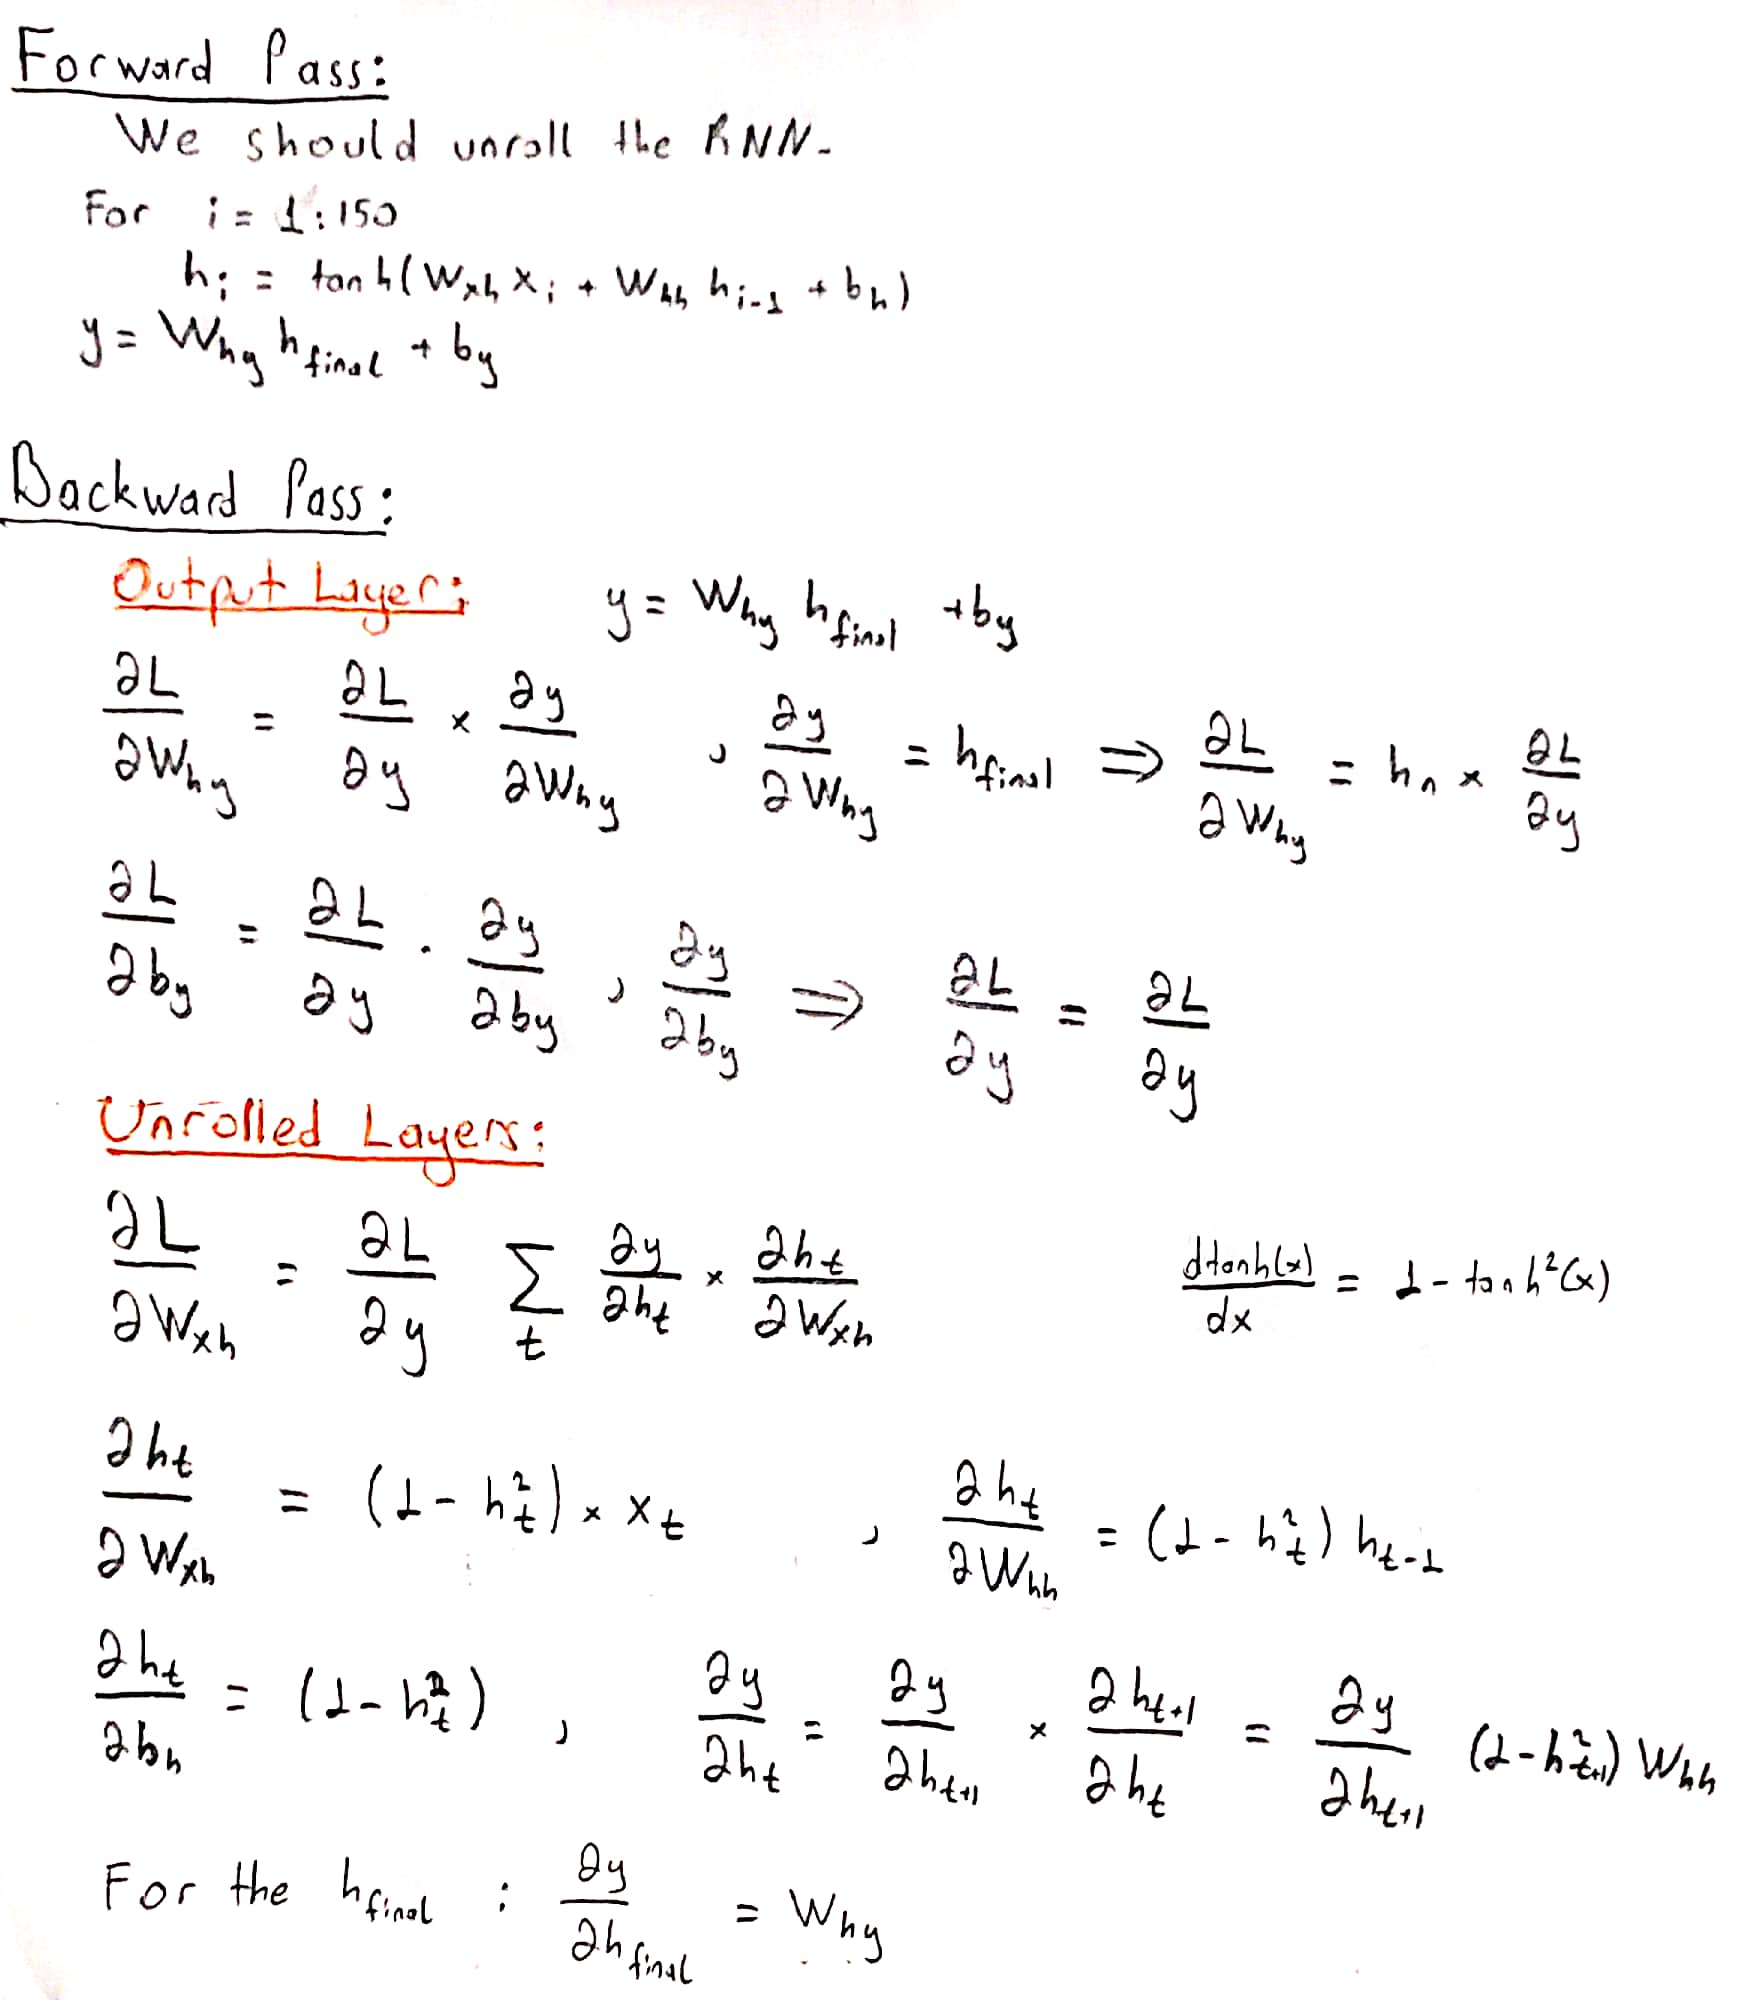 Forward Pass:
We should unroll the RNN.
For i = 1:150
h_i = tanh(W_xh x_i + W_hh h_i-1 + b_h)
y = W_hy h_final + b_y
Backward Pass:
Output Layer: y = W_hy h_final + b_y
∂L/∂W_hy = ∂L/∂y × ∂y/∂W_hy , ∂y/∂W_hy = h_final ⇒ ∂L/∂W_hy = h_n × ∂L/∂y
∂L/∂b_y = ∂L/∂y · ∂y/∂b_y , ∂y/∂b_y ⇒ ∂L/∂y = ∂L/∂y
Unrolled Layers:
∂L/∂W_xh = ∂L/∂y Σ_t ∂y/∂h_t × ∂h_t/∂W_xh dtanh(x)/dx = 1 - tanh²(x)
∂h_t/∂W_xh = (1 - h_t²) × x_t , ∂h_t/∂W_hh = (1 - h_t²) h_t-1
∂h_t/∂b_h = (1 - h_t²) , ∂y/∂h_t = ∂y/∂h_t+1 × ∂h_t+1/∂h_t = ∂y/∂h_t+1 (1 - h_t+1²) W_hh
For the h_final : ∂y/∂h_final = W_hy